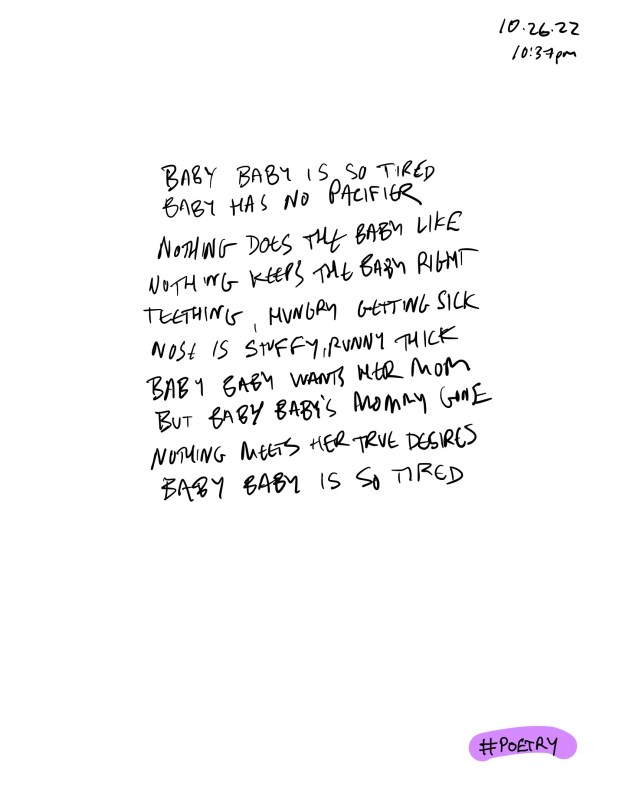 10.26.22
10:37pm
BABY BABY IS SO TIRED
BABY HAS NO PACIFIER
NOTHING DOES THE BABY LIKE
NOTHING KEEPS THE BABY RIGHT
TEETHING, HUNGRY GETTING SICK
NOSE IS STUFFY, RUNNY THICK
BABY BABY WANTS HER MOM
BUT BABY BABY'S MOMMY GONE
NOTHING MEETS HER TRUE DESIRES
BABY BABY IS SO TIRED
#POETRY